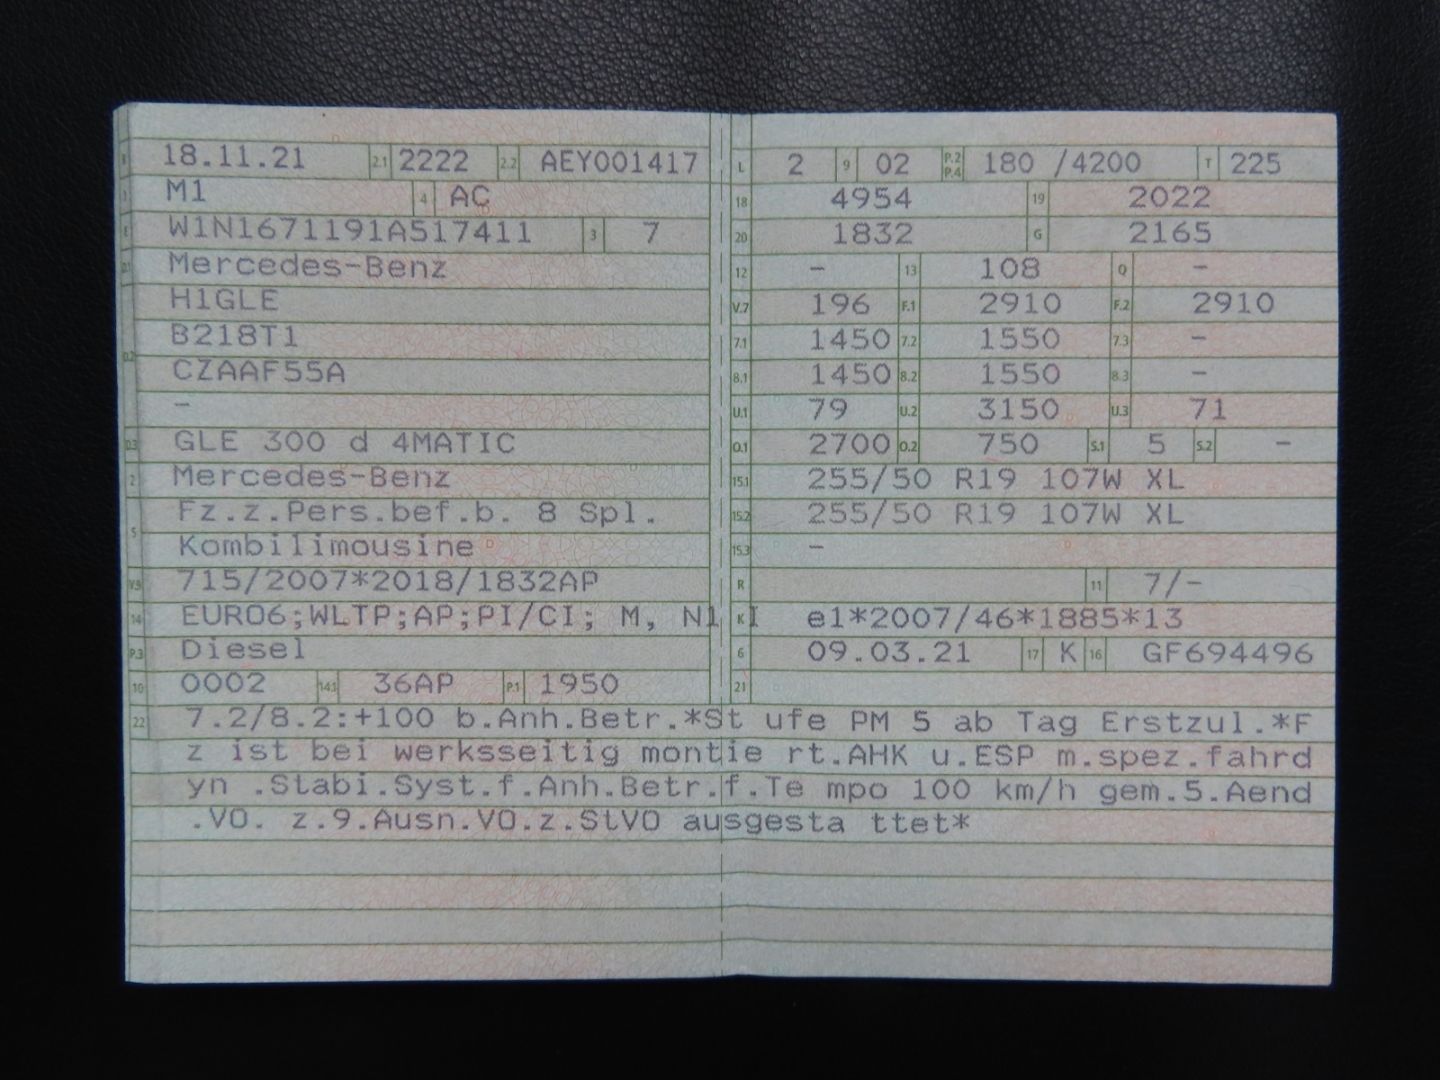 B 18.11.21 2.1 2222 2.2 AEY001417
J M1 4 AC
E W1N1671191A517411 3 7
D.1 Mercedes-Benz
H1GLE
D.2 B218T1
CZAAF55A
-
D.3 GLE 300 d 4MATIC
2 Mercedes-Benz
5 Fz.z.Pers.bef.b. 8 Spl.
Kombilimousine
V.9 715/2007*2018/1832AP
14 EURO6;WLTP;AP;PI/CI; M, N1 I
P.3 Diesel
10 0002 14.1 36AP P.1 1950
L 2 9 02 P.2 P.4 180 /4200 T 225
18 4954 19 2022
20 1832 G 2165
12 - 13 108 Q -
V.7 196 F.1 2910 F.2 2910
7.1 1450 7.2 1550 7.3 -
8.1 1450 8.2 1550 8.3 -
U.1 79 U.2 3150 U.3 71
O.1 2700 O.2 750 S.1 5 S.2 -
15.1 255/50 R19 107W XL
15.2 255/50 R19 107W XL
15.3 -
R 11 7/-
K e1*2007/46*1885*13
6 09.03.21 17 K 16 GF694496
21
22 7.2/8.2:+100 b.Anh.Betr.*St ufe PM 5 ab Tag Erstzul.*F
z ist bei werksseitig montie rt.AHK u.ESP m.spez.fahrd
yn .Stabi.Syst.f.Anh.Betr.f.Te mpo 100 km/h gem.5.Aend
.VO. z.9.Ausn.VO.z.StVO ausgesta ttet*